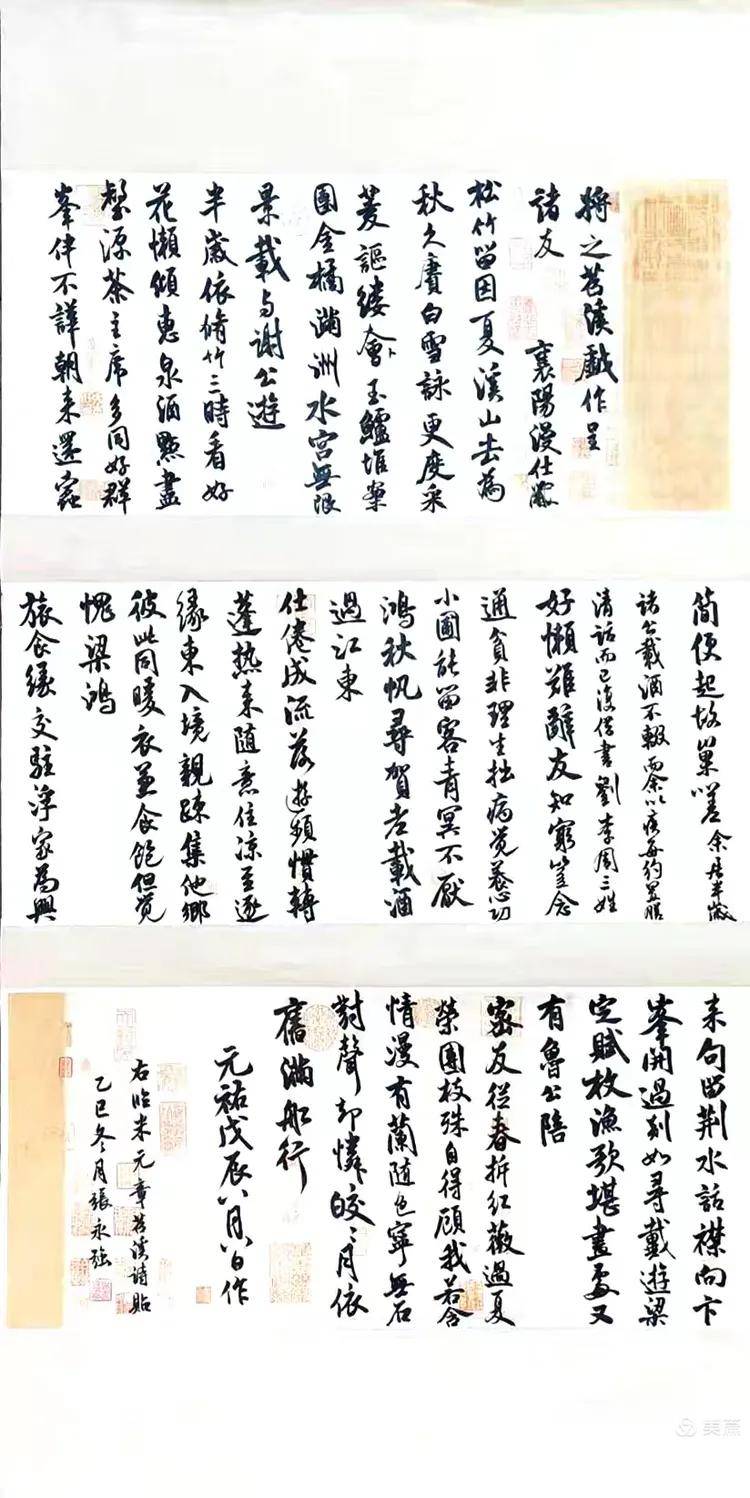 将之苕溪戲作呈
諸友 襄陽漫仕黻
松竹留因夏溪山去為
秋久賡白雪詠更度采
菱謳縷會玉鱸堆案
團金橘滿洲水宮無限
景載与謝公遊
半歲依脩竹三時看好
花懶傾惠泉酒點盡
壑源茶主席多同好群
峯伴不譁朝來還蠹
簡便起故巢嗟 余居半歲
諸公載酒不輟而余以疾每約置膳
清話而已復借書劉李周三姓
好懶難辭友知窮豈念
通貧非理生拙病覺養心功
小圃能留客青冥不厭
鴻秋帆尋賀老載酒
過江東
仕倦成流落遊頻慣轉
蓬熱來隨意住涼至逐
緣東入境親踈集他鄉
彼此同暖衣兼食飽但覺
愧梁鴻
旅食緣交駐浮家為興
來句留荆水話襟向卞
峯開過剡如尋戴遊梁
定賦枚漁歌堪畫處又
有魯公陪
密友從春拆紅薇過夏
榮團枝殊自得顧我若含
情漫有蘭隨色寧無石
對聲却憐皎〻月依
舊滿舡行
元祐戊辰八月八日作
右臨米元章苕溪詩貼
乙巳冬月張永強
美篇